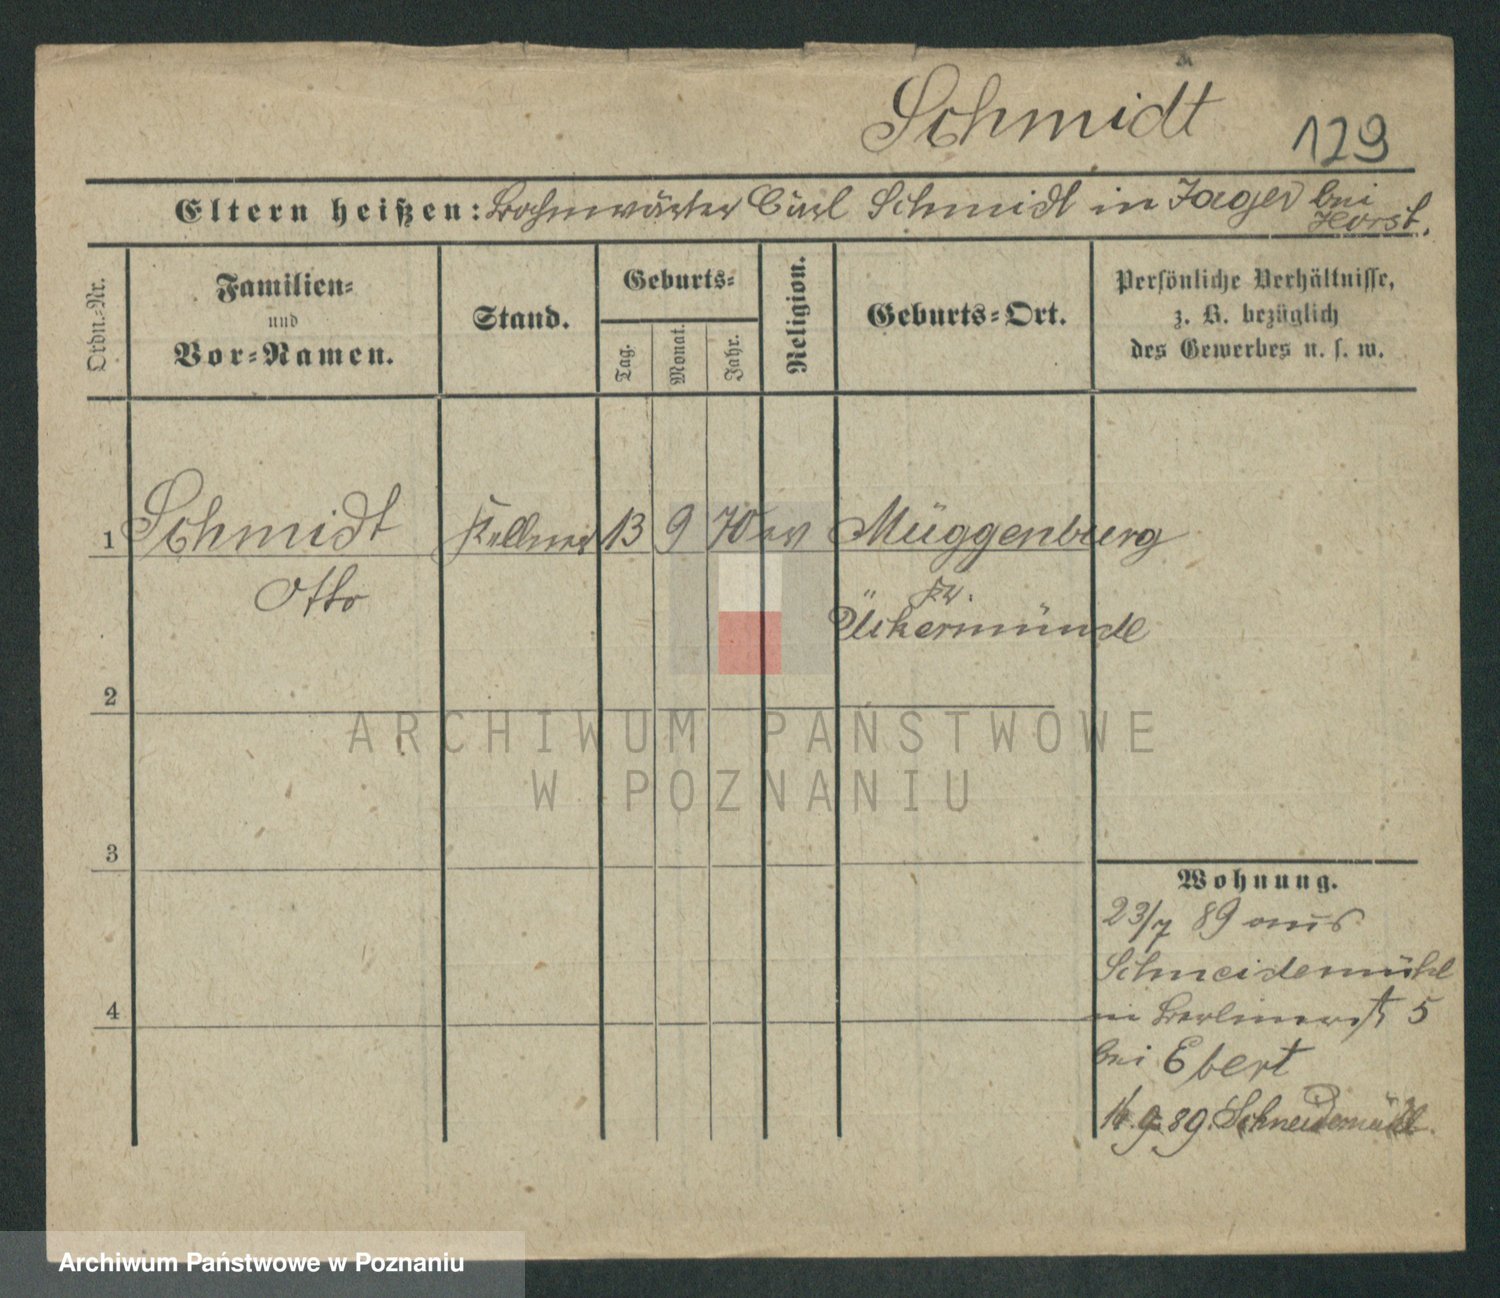 Schmidt
129
Eltern heißen: Bahnwärter Carl Schmidt in Jager bei
Horst.
Ordn.-Nr.
Familien-
und
Vor-Namen.
Stand.
Geburts-
Tag.
Monat.
Jahr.
Religion.
Geburts-Ort.
Persönliche Verhältnisse,
z. B. bezüglich
des Gewerbes u. s. w.
1 Schmidt Kellner 13 9 70 ev Müggenburg
Otto
Kr.
Ückermünde
2
3
4
Wohnung.
23/7 89 aus
Schneidemühl
in Berlinerst 5
bei Ebert
16.9.89. Schneidemühl.
ARCHIWUM PAŃSTWOWE
W POZNANIU
Archiwum Państwowe w Poznaniu